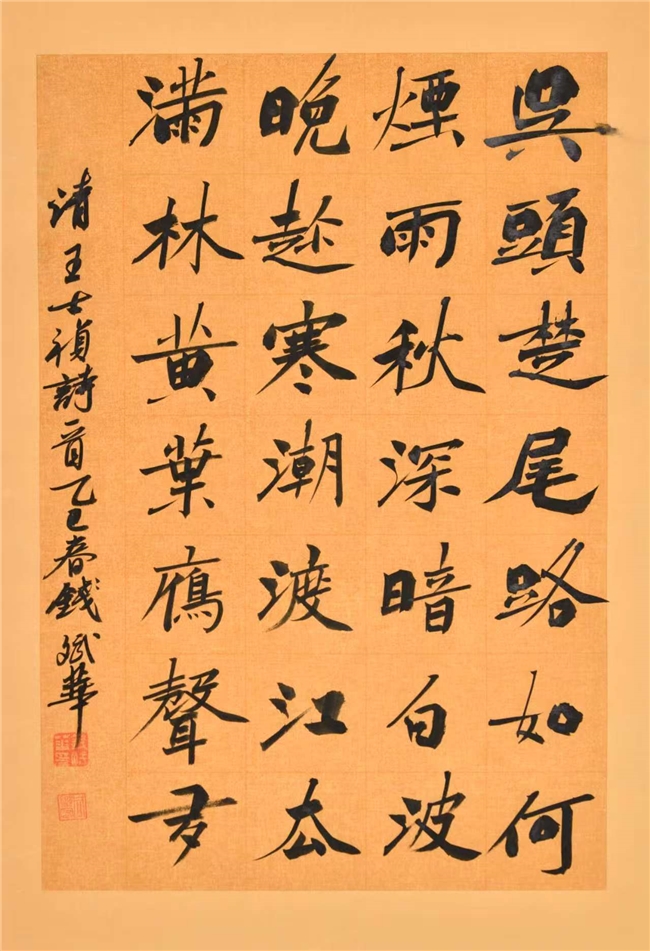 吳頭楚尾路如何
煙雨秋深暗白波
晚趁寒潮渡江去
滿林黄葉鴈聲多
清王士禎詩一首乙巳春錢斌華